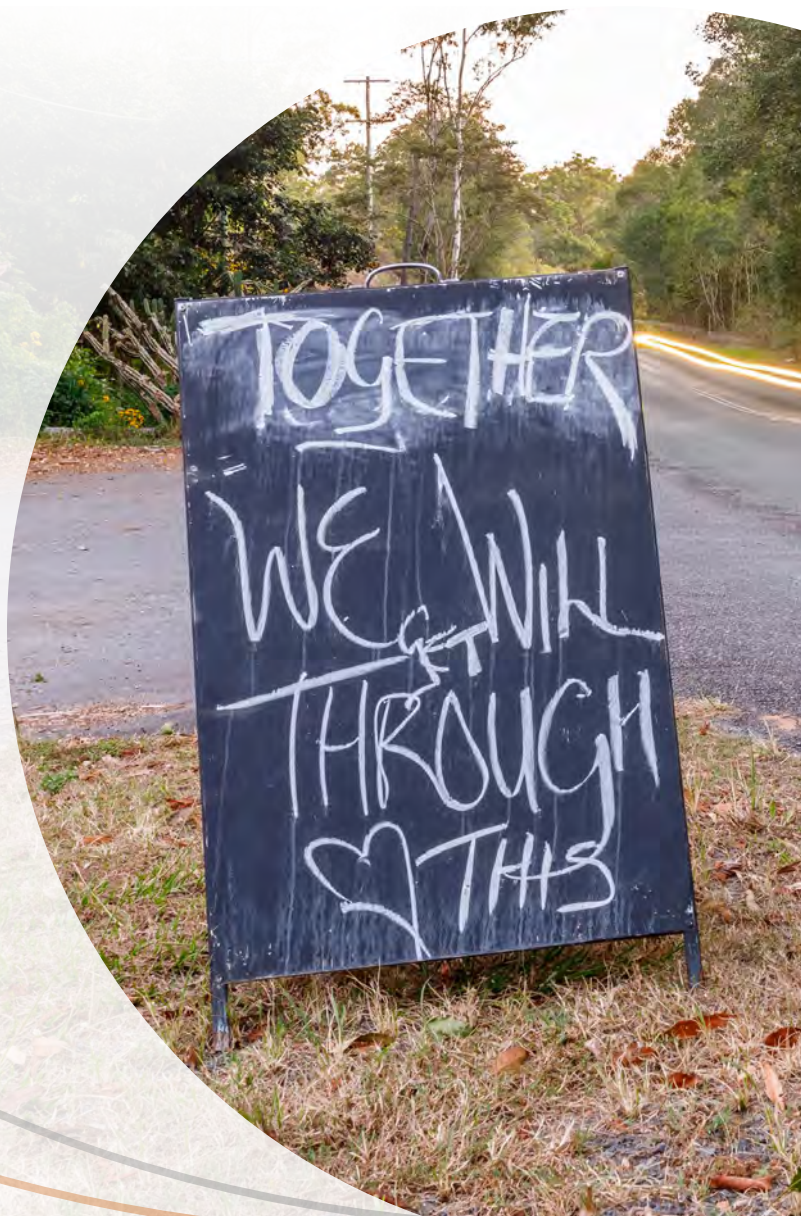 TOGETHER
WE WILL
GET
THROUGH
THIS